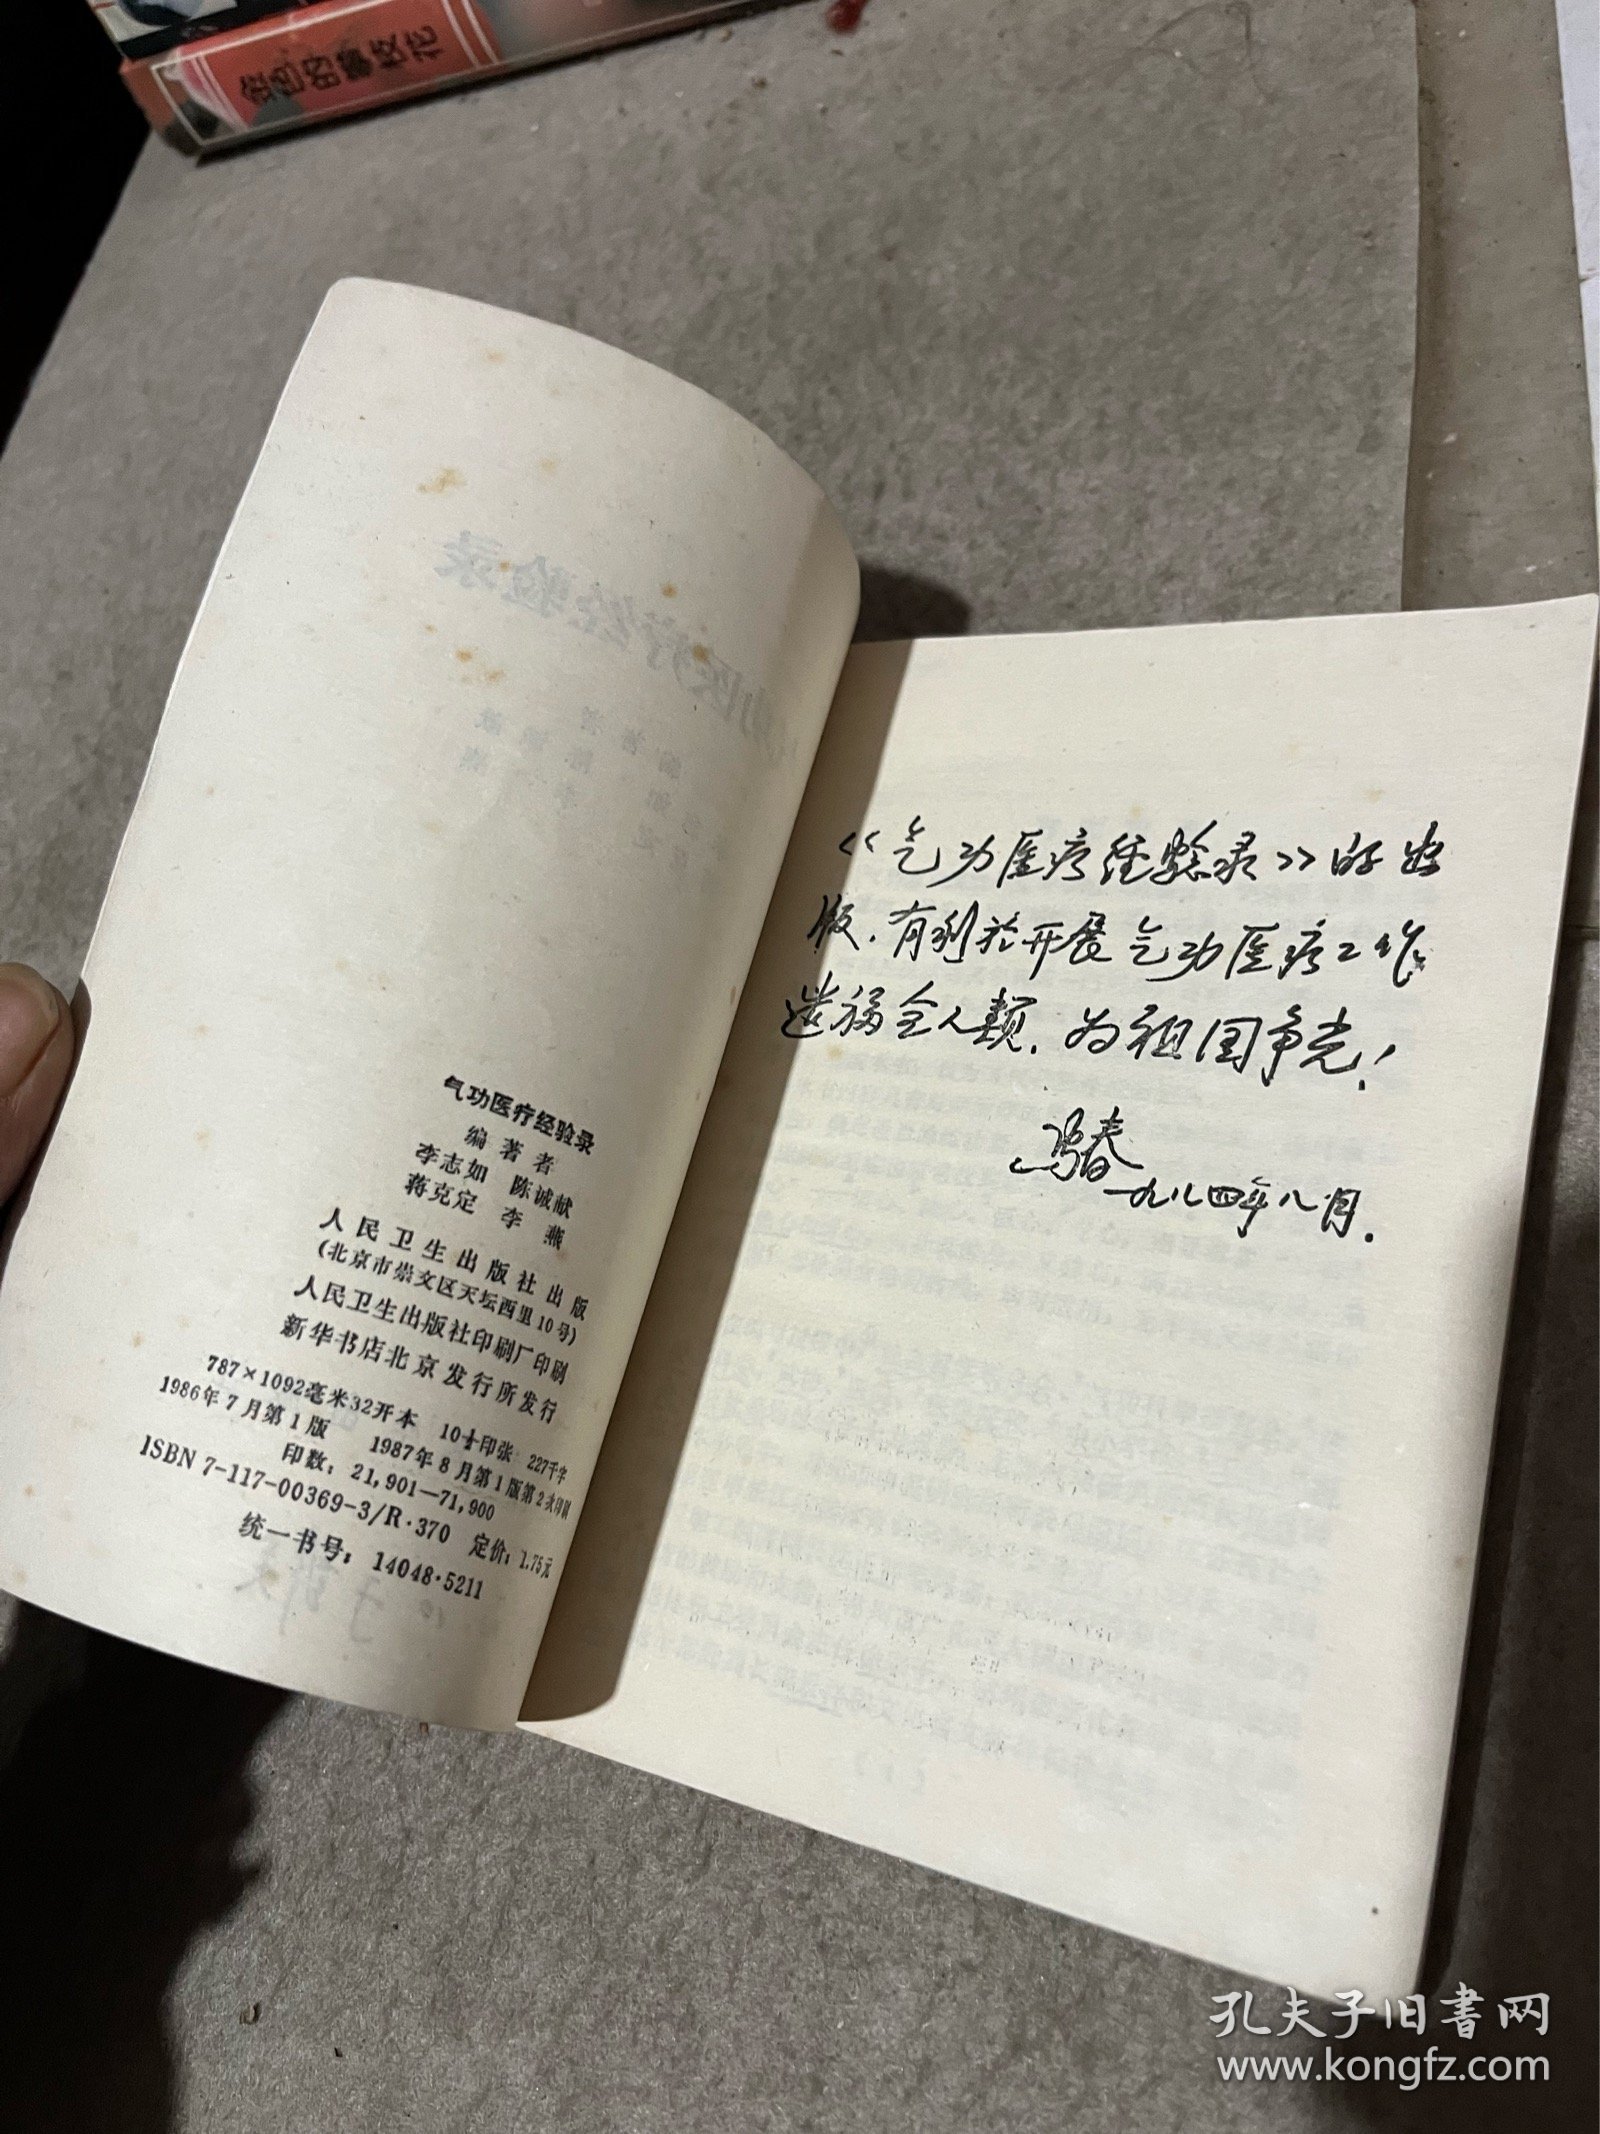 金色的攀枝花
气功医疗经验录
编著者
李志如 陈诚献
蒋克定 李燕
人民卫生出版社出版
(北京市崇文区天坛西里10号)
人民卫生出版社印刷厂印刷
新华书店北京发行所发行
787×1092毫米32开本 10¼印张 227千字
1986年7月第1版 1987年8月第1版第2次印刷
印数:21,901—71,900
ISBN 7-117-00369-3/R·370 定价:1.75元
统一书号:14048·5211
《气功医疗经验录》的出
版,有利於开展气功医疗工作
造福全人類,为祖国争光!
冯春
一九八四年八月.
孔夫子旧书网
www.kongfz.com